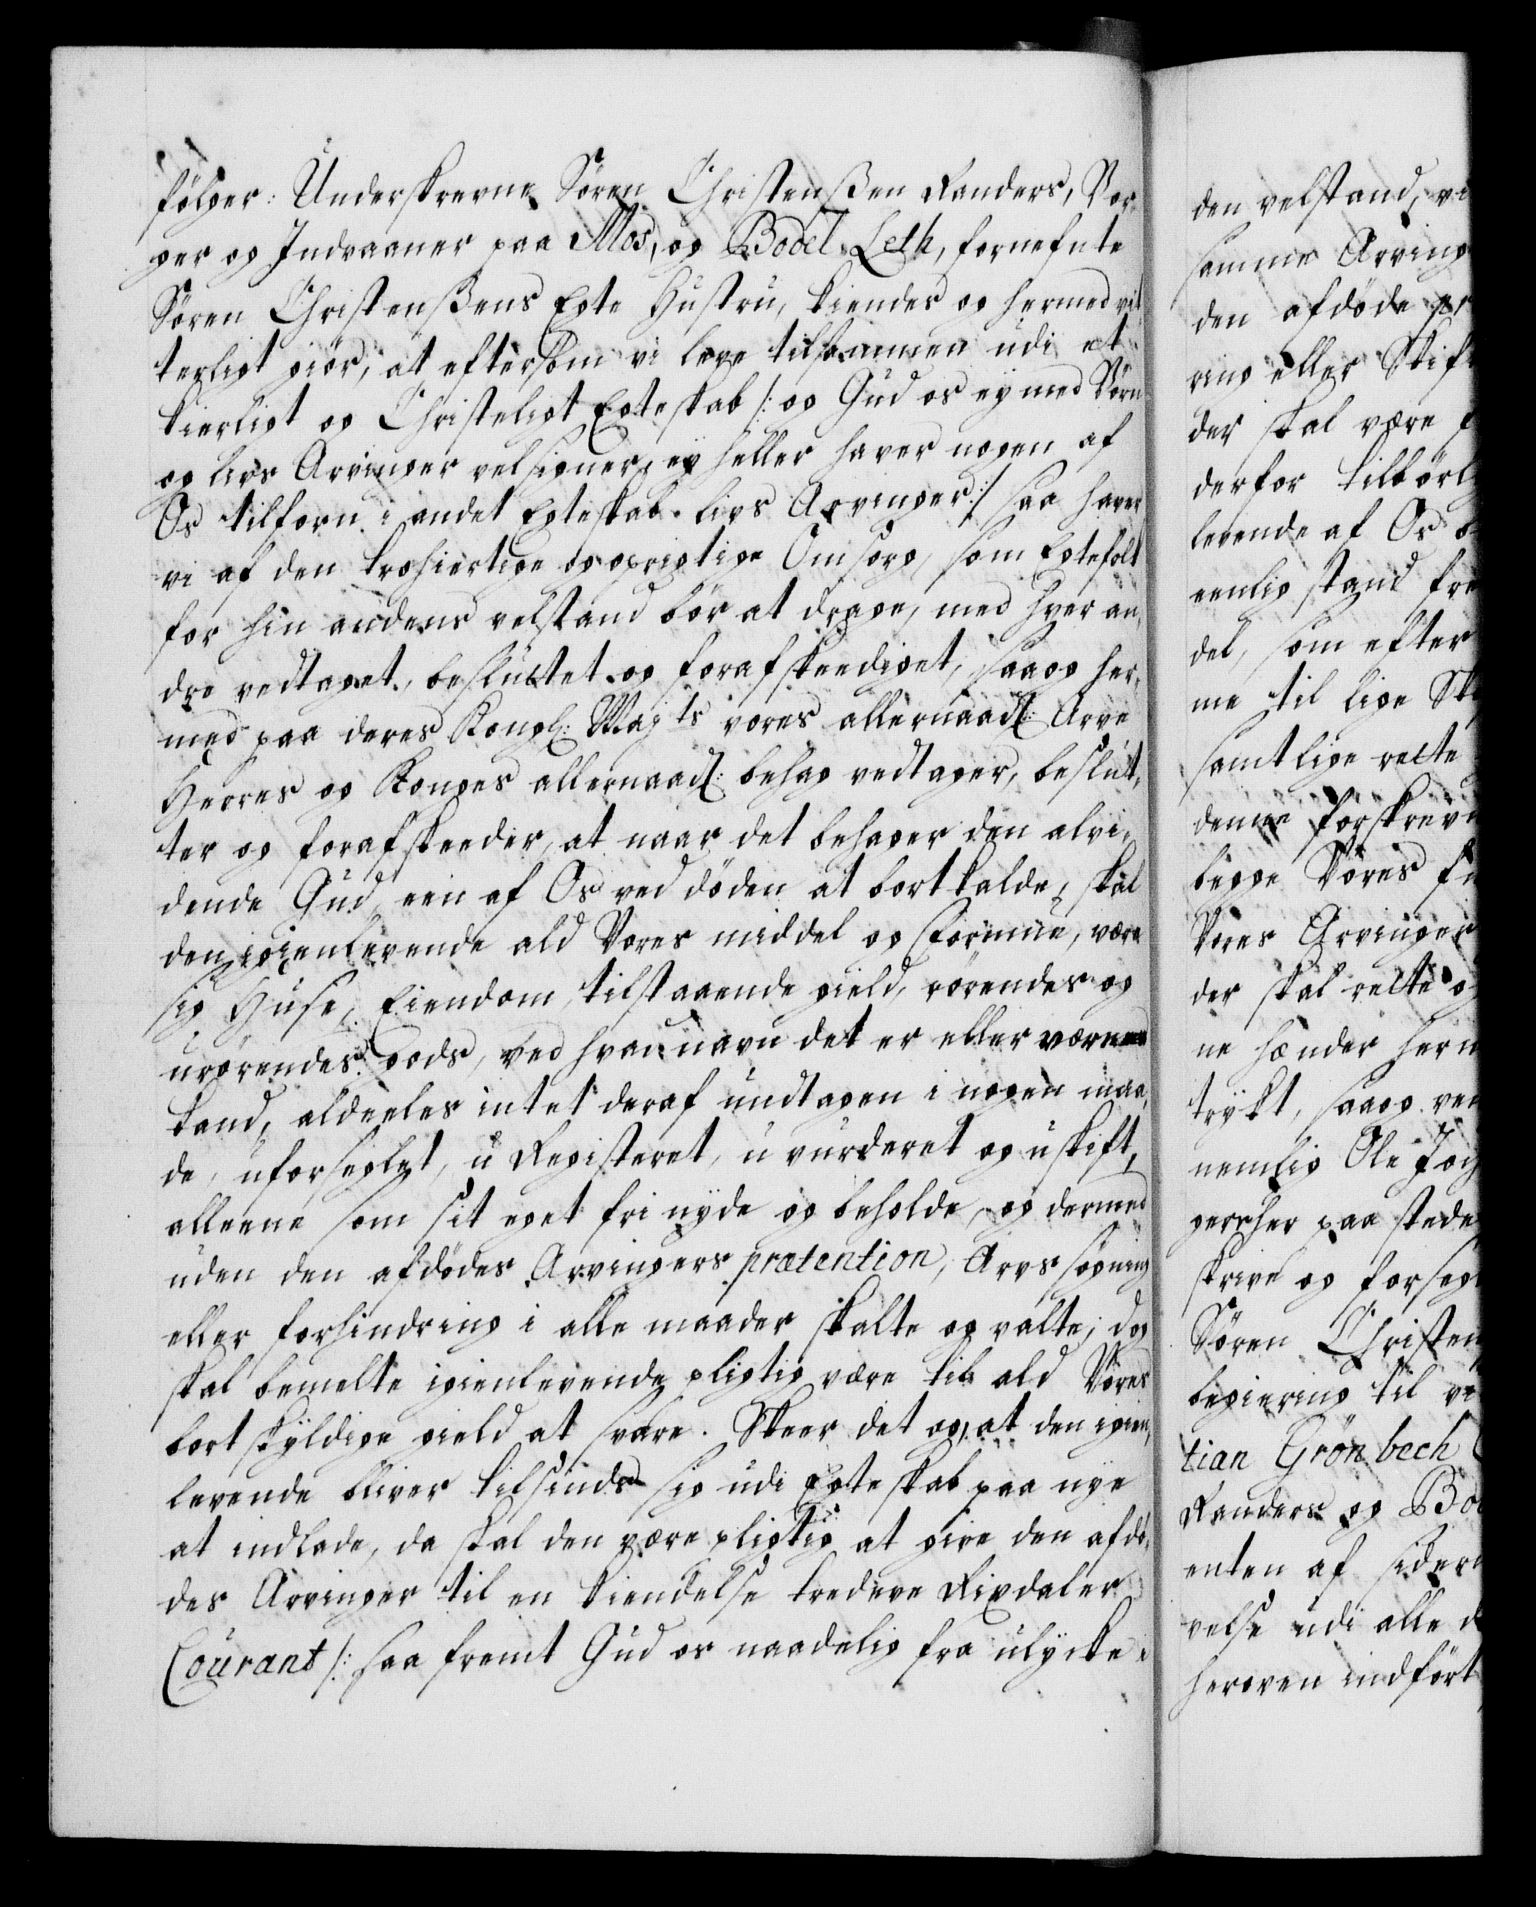 følger: Underskrevne Sören Christenßen Randers, Bor¬
ger og Indvaaner paa Mos, og Bodel Leth, fornefnte
Sören Christenßens Egte Hustru, kiendes og hermed vit¬
terligt giör, at eftersom vi leve tilsammen udi et
kierligt og Christeligt Egteskab /: og Gud os ey med Börn
og livs Arvinger velsigner, ey heller haver nogen af
Os tilforn i andet Egteskab livs Arvinger :/ saa haver
vi af den trohiertige og oprigtige Omsorg, som Egtefolk
for hin andens velstand bör at drage, med hver an¬
dre vedtaget, besluttet og forafskeediget, saa og her¬
med paa deres Kongl: Majts vores allernaad: Arve
Herres og Konges allernaad: behag vedtager, beslut¬
ter og forafskeeder, at naar det behager den alvi¬
dende Gud, een af Os ved döden at bortkalde, skal
den igienlevende ald Vores middel og formue, være
sig Huse, Eiendom, tilstaaende gield, rörendes og
urörendes gods, ved hvad navn det er eller være
kand, aldeeles intet deraf undtagen i nogen maa¬
de, uforseglet, u Registeret, u vurderet og uskift,
alleene som sit eget fri nyde og beholde, og dermed
uden den afdödes Arvingers prætention, Arvs søgning
eller forhindring i alle maader skalte og valte; dog
skal bemelte igienlevende pligtig være til ald Vores
bortskyldige gield at svare. Skeer det og, at den igien¬
levende bliver tilsinds sig udi Egteskab paa nye
at indlade, da skal den være pligtig at give den afdö¬
des Arvinger til en kiendelse tredive Rixdaler
Courant /: saa fremt Gud os naadelig fra ulycke i
den velstand, vi
samme Arving
den afdöde
ring eller Skift
der skal være
derfor tilbörl
levende af Os
eenlig stand fre
del, som efter
me til lige Sk
samtlige rette
denne forskrevn
begge Vores
Vores Arvinger
der skal rette og
ne hænder her
trykt, saa og ven
nemlig Ole Joch
ger her paa stede
skrive og forseg
Sören Christen
begiering til
tian Grönbech
Randers og Bo
enten af
velse udi alle
heroven indført